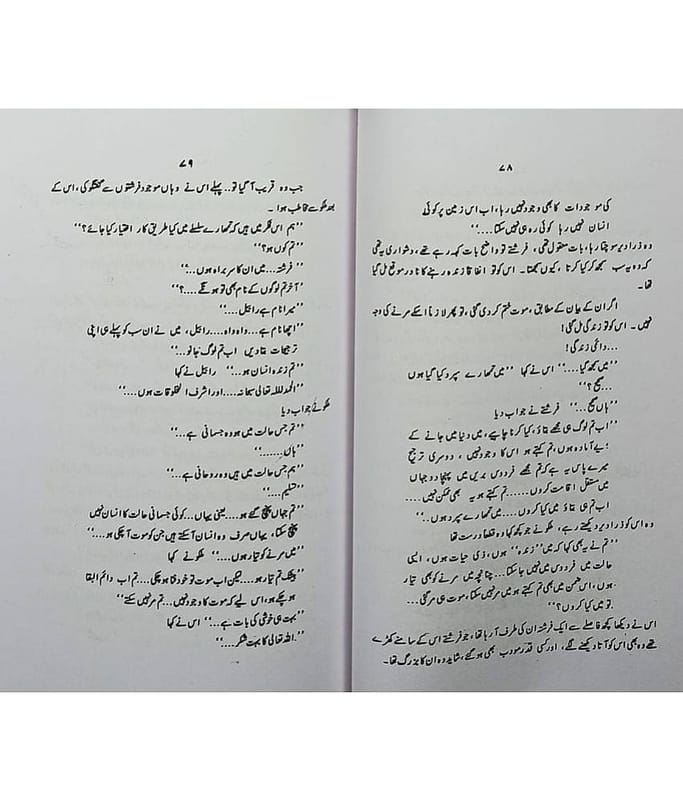 ۷۸
کی موجودات کا بھی وجود نہیں رہا، اب اس زمین پر کوئی
انسان نہیں رہا کوئی روح نہیں سکتی....''
وہ ذرا دیر سوچتا رہا، بات معقول تھی، فرشتے تو واضح بات کہہ رہے تھے، دشواری یہ تھی
کہ وہ یہ سب سمجھ کر کیا کرتا، کیوں سمجھتا۔ اس کو تو اتفاقاً زندہ رہنے کا نادر موقع مل گیا
تھا۔
اگر ان کے بیان کے مطابق، موت ختم کر دی گئی، تو پھر لازماً اسکے مرنے کی وجہ
نہیں۔ اس کو تو زندگی مل گئی!
...دائمی زندگی!
''میں سمجھ گیا....'' اس نے کہا ''میں تمھارے سپرد کیا گیا ہوں
صحیح؟''
''ہاں صحیح...'' فرشتے نے جواب دیا
''اب تم لوگ ہی مجھے بتاؤ، کیا کرنا چاہیے، میں دنیا میں جانے کے
لیے آمادہ ہوں، تم کہتے ہو اس کا وجود نہیں، دوسری ترجیح
میرے پاس یہ ہے کہ تم مجھے فردوس بریں میں پہنچا دو جہاں
میں مستقل اقامت کروں.....تم کہتے ہو یہ بھی ممکن نہیں...
اب تم ہی بتاؤ میں کیا کروں....میں تمھارے سپرد ہوں..''
وہ اس کو ذرا دیر دیکھتے رہے، منگو نے جو کچھ کہا وہ قطعاً درست تھا
''تم نے یہ بھی کہا کہ میں ''زندہ'' ہوں، ذی حیات ہوں، ایسی
حالت میں فردوس میں نہیں جا سکتا...چنانچہ میں مرنے کو بھی تیار
ہوں، اس ضمن میں بھی تم کہتے ہو میں مر نہیں سکتا، موت ہی مر گئی...
تو میں کیا کروں؟''
اس نے دیکھا کچھ فاصلے سے ایک فرشتہ ان کی طرف آ رہا تھا، جو فرشتے اس کے سامنے کھڑے
تھے وہ بھی اس کو آتا دیکھنے لگے، اور کسی قدر مودب بھی ہو گئے، شاید وہ ان کا بزرگ تھا۔
۷۹
جب وہ قریب آ گیا تو.. پہلے اس نے وہاں موجود فرشتوں سے گفتگو کی، اس کے
بعد منگو سے مخاطب ہوا۔
''ہم اس فکر میں ہیں کہ تمھارے سلسلے میں کیا طریق کار اختیار کیا جائے؟''
''تم کون ہو؟''
''فرشتہ...میں ان کا سربراہ ہوں...''
''آخر تم لوگوں کے نام بھی تو ہونگے....؟''
''میرا نام ہے رابیل...''
''اچھا نام ہے...واہ واہ.... رابیل، میں نے ان سب کو پہلے ہی اپنی
ترجیحات بتا دیں اب تم لوگ جانو...''
''تم زندہ انسان ہو...'' رابیل نے کہا
''الحمد للہ تعالی سبحانہ....اور اشرف المخلوقات ہوں....''
منگو نے جواب دیا
''تم جس حالت میں ہو وہ جسمانی ہے...''
''ہاں......''
''ہم جس حالت میں ہیں وہ روحانی ہے...''
''تسلیم....''
''تم جہاں پہنچ گئے ہو....یعنی یہاں...کوئی جسمانی حالت کا انسان نہیں
پہنچ سکتا، یہاں صرف وہ انسان آ سکتے ہیں جن کو موت آ چکی ہو....''
''میں مرنے کو تیار ہوں....'' منگو نے کہا
''بیشک تم تیار ہو....لیکن اب موت تو خود فنا ہو چکی....تم اب دائم البقا
ہو چکے ہو، اس لیے کہ موت کا وجود نہیں...تم مر نہیں سکتے''
''بہت ہی خوشی کی بات ہے...'' اس نے کہا
''اللہ تعالی کا بہت شکر....''